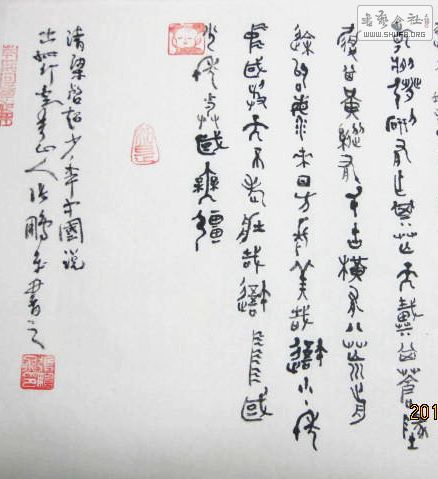 書藝公社
WWW.SHUFB.ORG
干將發硎有作其芒天戴其蒼地
履其黃縱有千古橫有八荒前
途似海來日方長美哉我少年
中國與天不老壯哉我中國
少年與國無疆
清梁啟超少年中國說
山人張鵬書之
201